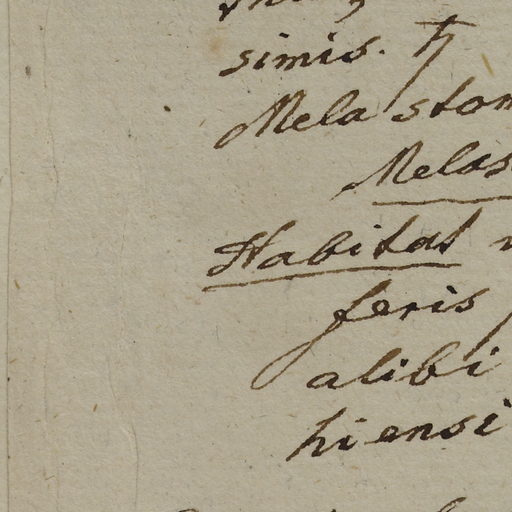 simis. ♄
Melastom
Melas
Habitat
feris
alibi
hiensi